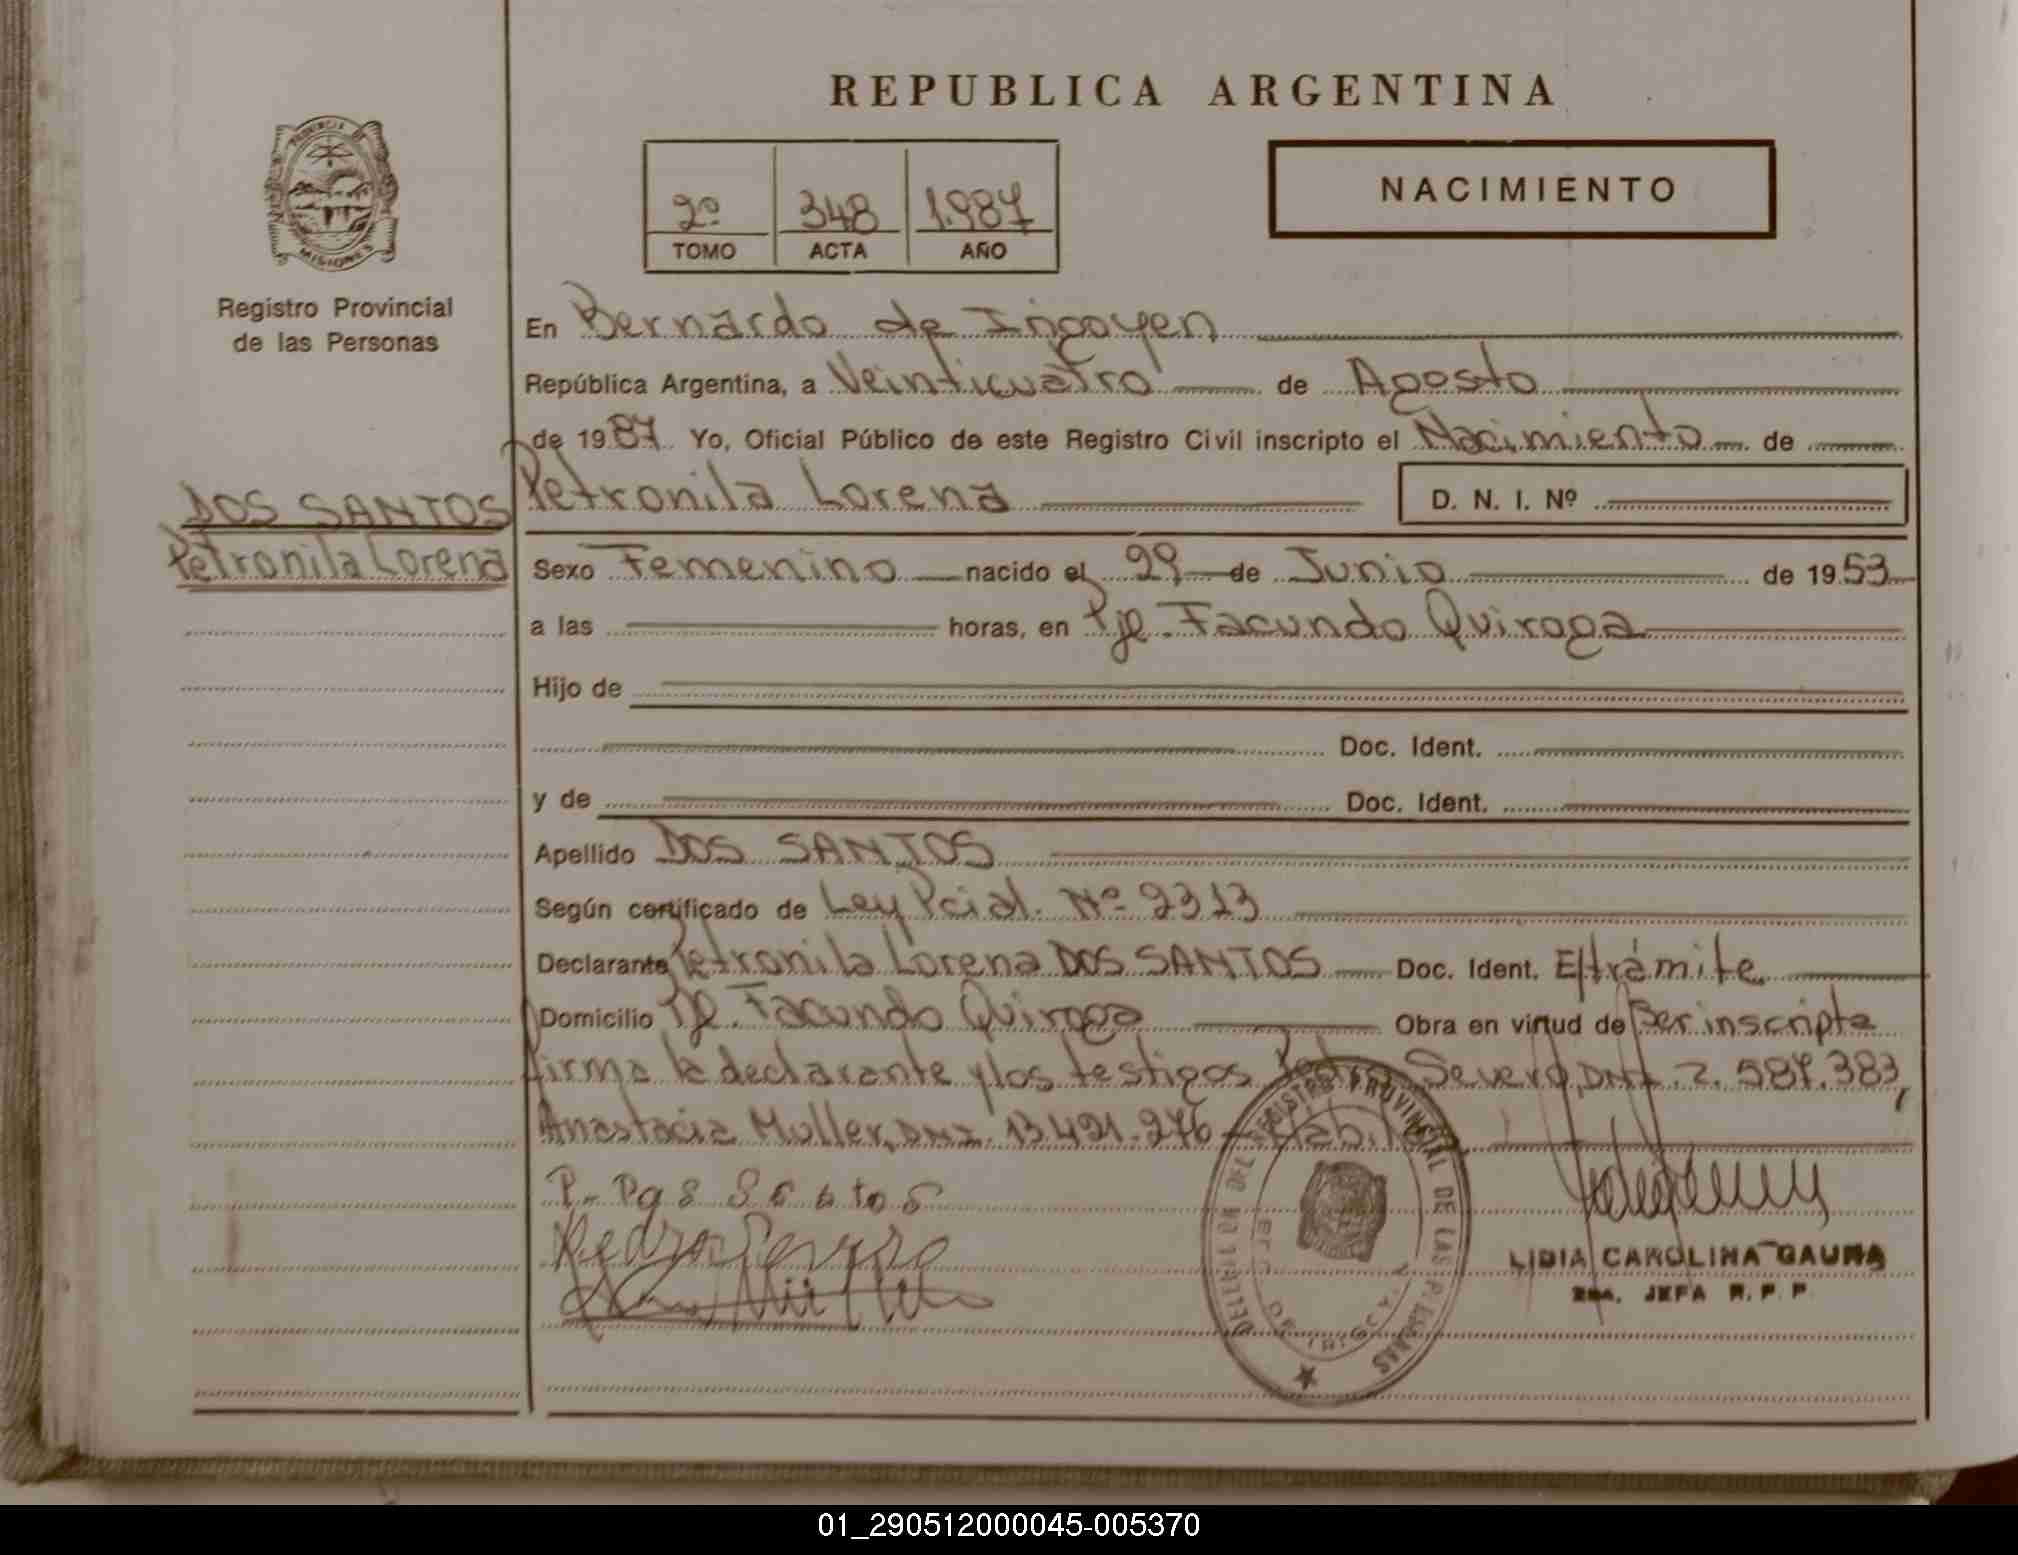 REPUBLICA ARGENTINA
PROVINCIA DE
MISIONES
Registro Provincial
de las Personas
2º 348 1.987
TOMO ACTA AÑO
NACIMIENTO
En Bernardo de Irigoyen
República Argentina, a Veinticuatro de Agosto
de 1987 Yo, Oficial Público de este Registro Civil inscripto el Nacimiento de
DOS SANTOS
Petronila Lorena
Petronila Lorena D. N. I. Nº
Sexo Femenino nacido el 29 de Junio de 1953
a las horas, en Pje. Facundo Quiroga
Hijo de
Doc. Ident.
y de Doc. Ident.
Apellido DOS SANTOS
Según certificado de Ley Pcial. Nº 2313
Declarante Petronila Lorena DOS SANTOS Doc. Ident. E/trámite
Domicilio Pje. Facundo Quiroga Obra en virtud de Ser inscripta
firma la declarante y los testigos Pedro Severo, DNI. 7.587.383,
Anastacia Muller, DNI. 13.491.276
Pedro Severo
DELEGACION DEL REGISTRO PROVINCIAL DE LAS PERSONAS
LIDIA CAROLINA GAUNA
2da. JEFA R. P. P.
01_290512000045-005370